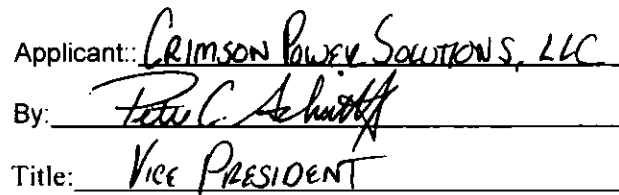 Applicant:: CRIMSON POWER SOLUTIONS, LLC
By: Peter C.
Title: VICE PRESIDENT